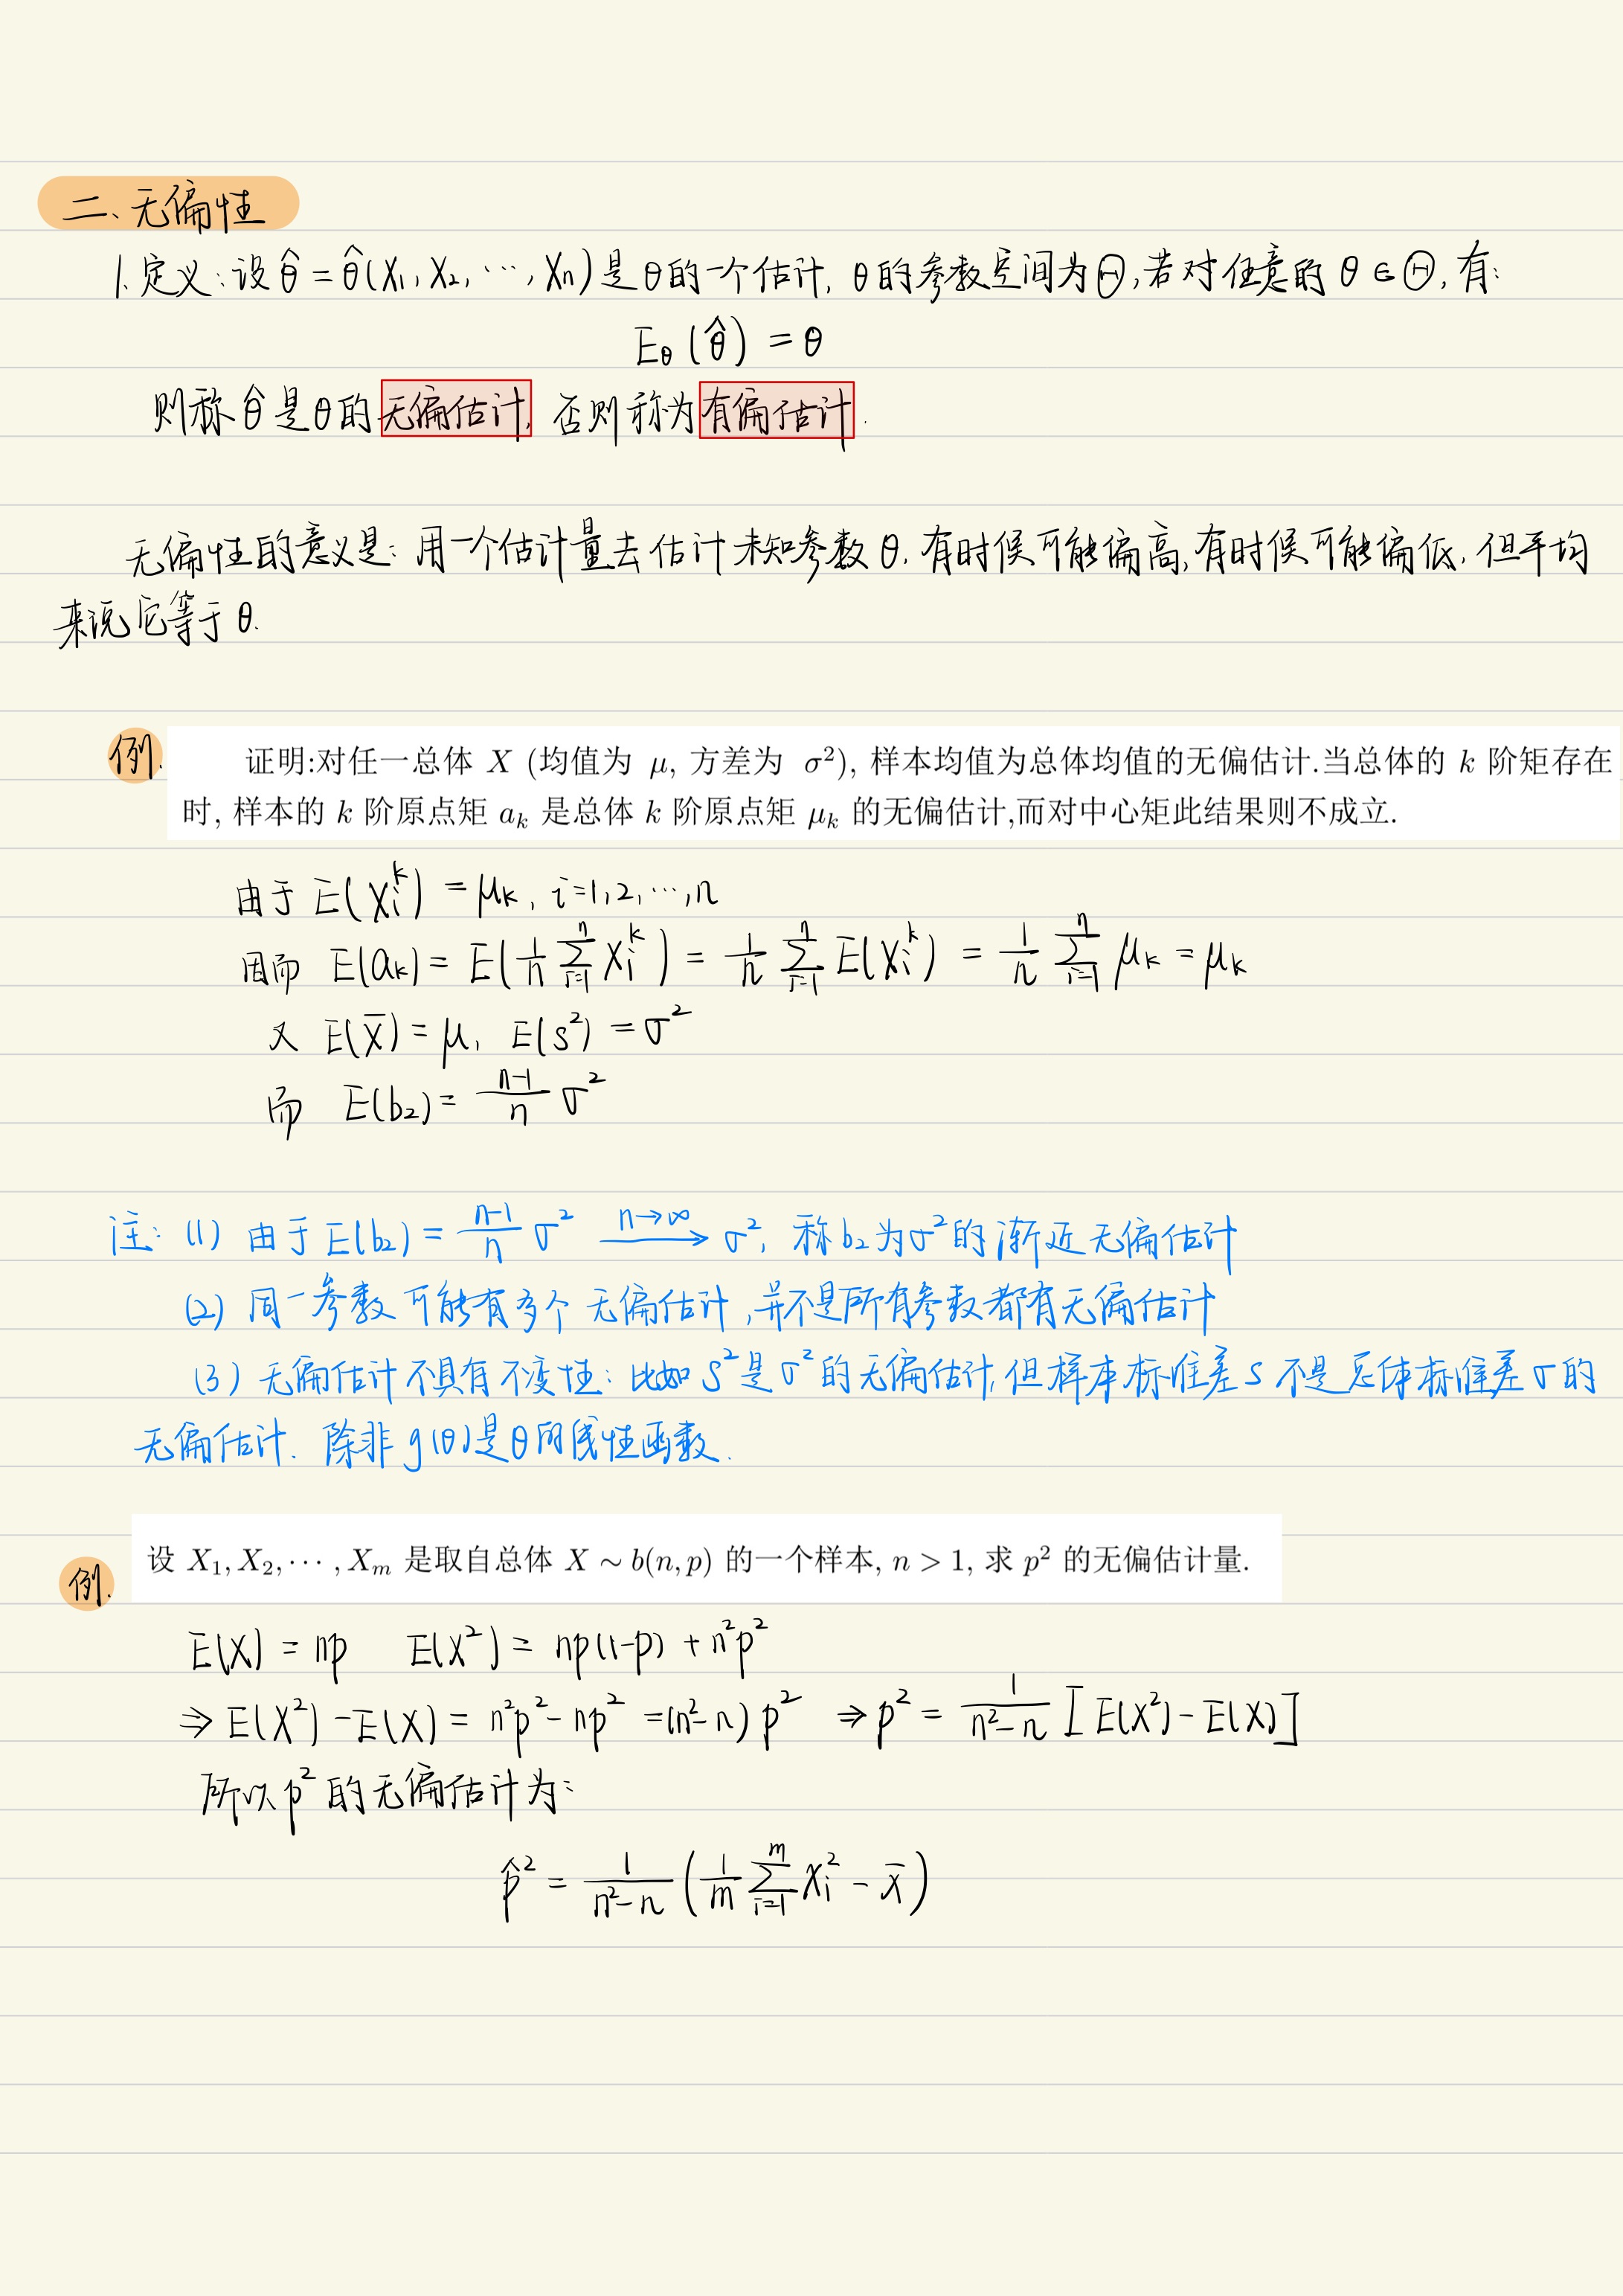 二、无偏性
1. 定义：设 θ̂ = θ̂(X₁, X₂, ⋯, Xn) 是 θ 的一个估计, θ 的参数空间为 Θ, 若对任意的 θ ∈ Θ, 有:
E_θ(θ̂) = θ
则称 θ̂ 是 θ 的无偏估计, 否则称为有偏估计.
无偏性的意义是: 用一个估计量去估计未知参数 θ, 有时候可能偏高, 有时候可能偏低, 但平均
来说它等于 θ.
例. 证明:对任一总体 X (均值为 μ, 方差为 σ²), 样本均值为总体均值的无偏估计.当总体的 k 阶矩存在
时, 样本的 k 阶原点矩 a_k 是总体 k 阶原点矩 μ_k 的无偏估计,而对中心矩此结果则不成立.
由于 E(X_i^k) = μ_k, i=1,2,⋯,n
因而 E(a_k) = E(1/n ∑_{i=1}^{n} X_i^k) = 1/n ∑_{i=1}^{n} E(X_i^k) = 1/n ∑_{i=1}^{n} μ_k = μ_k
又 E(X̄) = μ, E(s²) = σ²
而 E(b₂) = (n-1)/n σ²
注: (1) 由于 E(b₂) = (n-1)/n σ² —n→∞→ σ², 称 b₂ 为 σ² 的渐近无偏估计
(2) 同一参数可能有多个无偏估计, 并不是所有参数都有无偏估计
(3) 无偏估计不具有不变性: 比如 S² 是 σ² 的无偏估计, 但样本标准差 s 不是总体标准差 σ 的
无偏估计. 除非 g(θ) 是 θ 的线性函数.
例. 设 X₁, X₂, ⋯ , X_m 是取自总体 X ∼ b(n, p) 的一个样本, n > 1, 求 p² 的无偏估计量.
E(X) = np E(X²) = np(1-p) + n²p²
⇒ E(X²) - E(X) = n²p² - np² = (n²-n) p² ⇒ p² = 1/(n²-n) [E(X²) - E(X)]
所以 p² 的无偏估计为:
p̂² = 1/(n²-n) (1/m ∑_{i=1}^{m} X_i² - x̄)